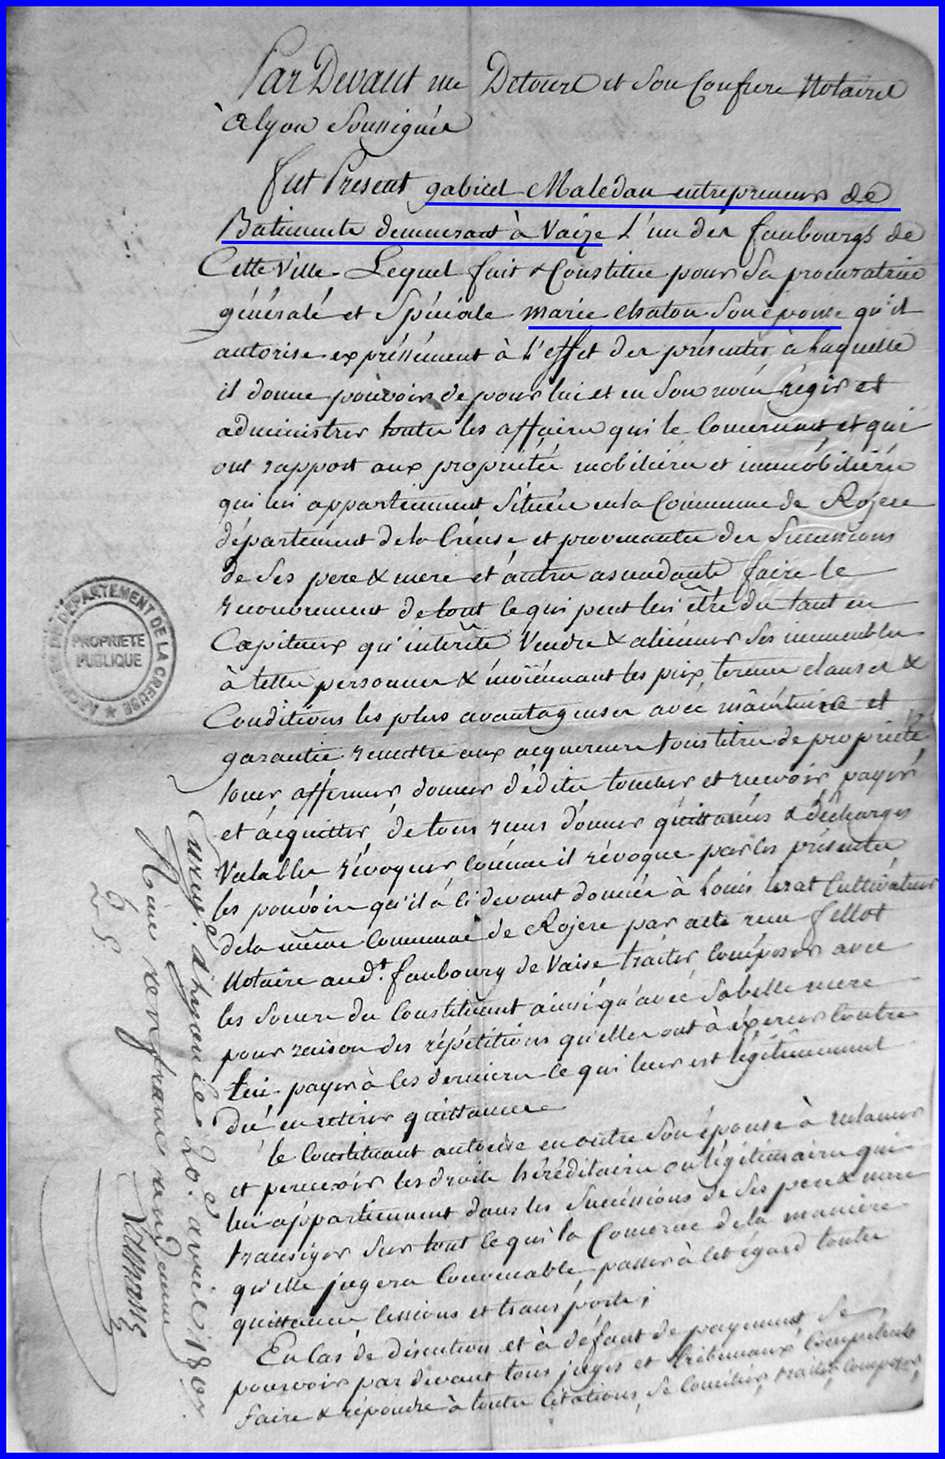 Par Devant me Detours et Son Confrere Notaires
à lyon Soussignés
fut Present gabriel Maledan entrepreneur de
Batiments demeurant à Vaize L'un des faubourgs de
Cette Ville Lequel fait & Constitue pour Sa procuratrice
générale et Spéciale marie chaton Son épouse qu'il
autorise expréssément à L'effet des présentes, à laquelle
il donne pouvoir de pour lui et en Son nom régir et
administrer toutes les affaires qui le Concernent et qui
ont rapport aux proprietés mobiliéres et immobiliéres
qui lui appartiennent Situées en la Commune de Rojere
département de la Creuse et provenantes des Successions
de Ses pere & mere et autres ascendants faire le
recouvrement de tout ce qui peut lui être du tant en
Capiteaux qu'interêts Vendre & aliéner Ses immeubles
à telles personnes & moïénnant les prix, termes clauses &
Conditions les plus avantageuses avec maintenue et
garantie remettre aux acquereurs tous titres de propriété,
louer affermer donner dédites toucher et recevoir, payer
et acquitter, de tous reçus donner quittances & décharges
Valables révoquer, comme il révoque par les présentes
les pouvoirs qu'il a ci devant donnés à Louis Cultivateur
de la même Commune de Rojere par acte reçu fellot
Notaire audt. faubourg de Vaise traiter composer avec
les Soeurs du Constituant ainsi qu'avec Sa belle mere
pour raison des répétitions qu'elles ont à éxercer contre
lui payer à ces dernieres ce qui leur est légitimement
dû en retirer quittance
le Constituant autorise en outre Son épouse à reclamer
et percevoir les droits héréditaires ou légitimaires qui
lui appartiennent dans les Successions de Ses pere & mere
transiger Sur tout ce qui la Concerne de la maniére
qu'elle jugera Convenable, passer à cet égard toutes
quittances cessions et transports;
En Cas de discution et à défaut de payement, Se
pourvoir par devant tous juges et tribunaux Compétents
faire & répondre à toutes Citations, Se Concilier, traiter, composer,
ARCHIVES DU DÉPARTEMENT DE LA CREUSE
PROPRIÉTÉ
PUBLIQUE
avril 180
Reçu francs